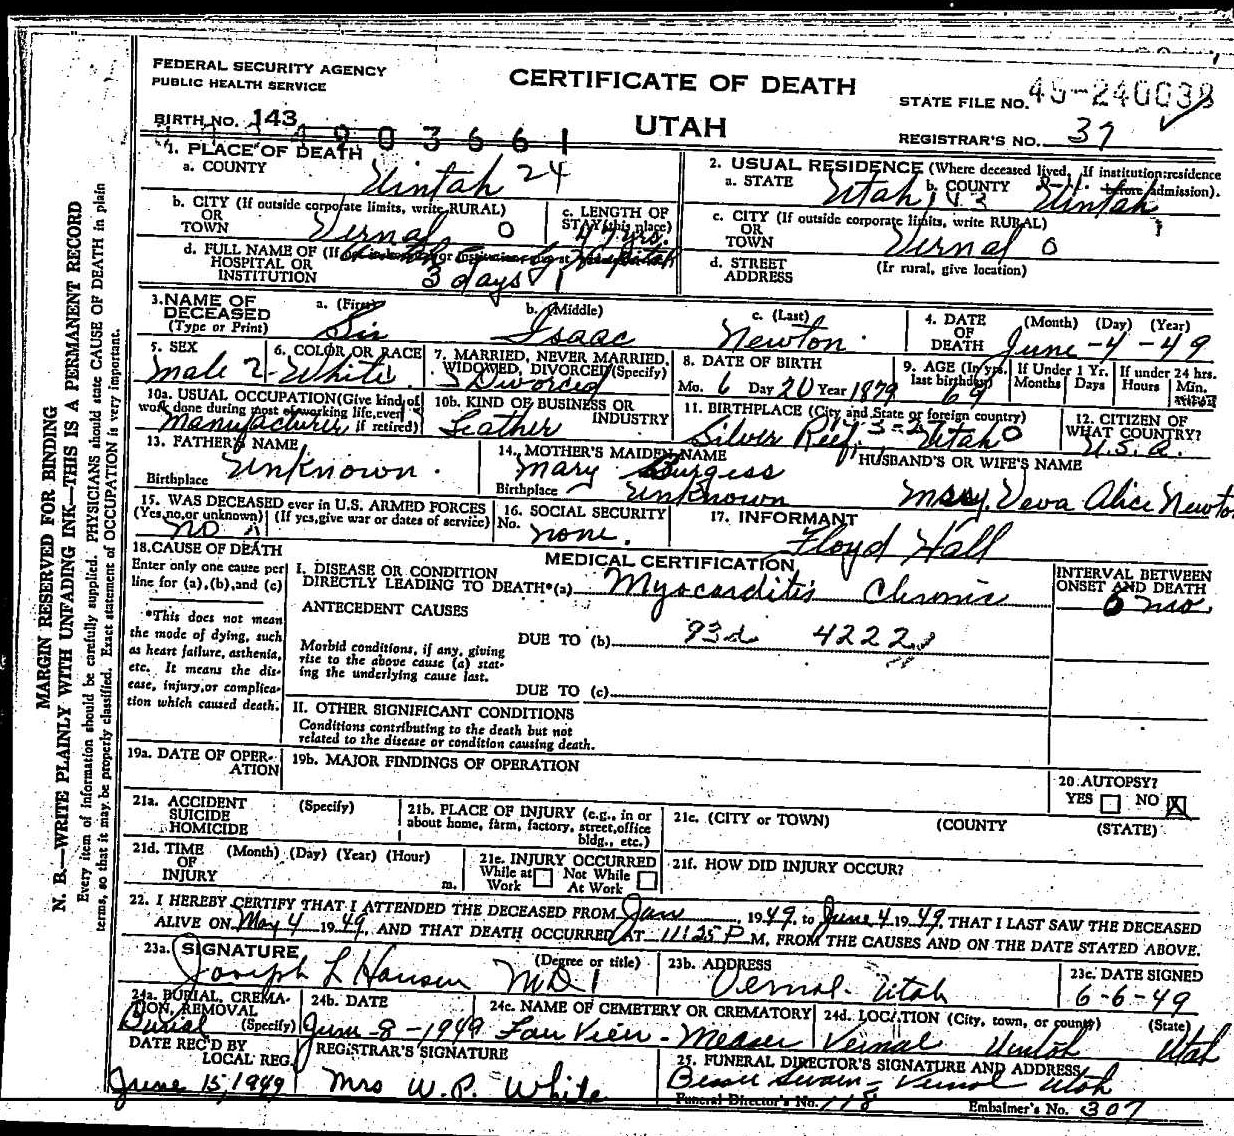 FEDERAL SECURITY AGENCY
PUBLIC HEALTH SERVICE
CERTIFICATE OF DEATH
STATE FILE NO.
BIRTH NO. 143
UTAH
REGISTRAR'S NO. 37
1903661
1. PLACE OF DEATH
a. COUNTY Uintah 24
2. USUAL RESIDENCE (Where deceased lived. If institution: residence before admission).
a. STATE Utah b. COUNTY Uintah
b. CITY (If outside corporate limits, write RURAL)
OR
TOWN Vernal 0
c. LENGTH OF
STAY (this place)
47 yrs.
c. CITY (If outside corporate limits, write RURAL)
OR
TOWN Vernal 0
d. FULL NAME OF (If
HOSPITAL OR
INSTITUTION 3 days
d. STREET
ADDRESS
(If rural, give location)
3. NAME OF
DECEASED
(Type or Print)
a. (First) b. (Middle) c. (Last)
Sir Isaac Newton
4. DATE
OF
DEATH
(Month) (Day) (Year)
June - 4 - 49
5. SEX
Male 2
6. COLOR OR RACE
White
7. MARRIED, NEVER MARRIED,
WIDOWED, DIVORCED (Specify)
Divorced
8. DATE OF BIRTH
Mo. 6 Day 20 Year 1879
9. AGE (In yrs.
last birthday)
69
If Under 1 Yr.
Months Days
If under 24 hrs.
Hours Min.
10a. USUAL OCCUPATION (Give kind of
work done during most of working life, even
if retired)
Manufacturer
10b. KIND OF BUSINESS OR
INDUSTRY
Leather
11. BIRTHPLACE (City and State or foreign country)
Silver Reef, Utah 0
12. CITIZEN OF
WHAT COUNTRY?
U.S.A.
13. FATHER'S NAME
Unknown.
Birthplace
14. MOTHER'S MAIDEN NAME
Mary Burgess
Birthplace Unknown
HUSBAND'S OR WIFE'S NAME
Veva Alice Newton
15. WAS DECEASED ever in U.S. ARMED FORCES
(Yes, no, or unknown) (If yes, give war or dates of service)
No
16. SOCIAL SECURITY
No. none.
17. INFORMANT
Floyd Hall
18. CAUSE OF DEATH
Enter only one cause per
line for (a), (b), and (c)
*This does not mean
the mode of dying, such
as heart failure, asthenia,
etc. It means the dis-
ease, injury, or complica-
tion which caused death.
MEDICAL CERTIFICATION
I. DISEASE OR CONDITION
DIRECTLY LEADING TO DEATH*(a) Myocarditis Chronic
INTERVAL BETWEEN
ONSET AND DEATH
6 mo.
ANTECEDENT CAUSES
Morbid conditions, if any, giving
rise to the above cause (a) stat-
ing the underlying cause last.
DUE TO (b) 93d 4222
DUE TO (c)
II. OTHER SIGNIFICANT CONDITIONS
Conditions contributing to the death but not
related to the disease or condition causing death.
19a. DATE OF OPER-
ATION
19b. MAJOR FINDINGS OF OPERATION
20. AUTOPSY?
YES NO X
21a. ACCIDENT
SUICIDE
HOMICIDE
(Specify)
21b. PLACE OF INJURY (e.g., in or
about home, farm, factory, street, office
bldg., etc.)
21c. (CITY or TOWN) (COUNTY (STATE)
21d. TIME
OF
INJURY
(Month) (Day) (Year) (Hour)
m.
21e. INJURY OCCURRED
While at
Work
Not While
At Work
21f. HOW DID INJURY OCCUR?
22. I HEREBY CERTIFY THAT I ATTENDED THE DECEASED FROM Jan, 1949, to June 4 1949, THAT I LAST SAW THE DECEASED
ALIVE ON May 4 1949, AND THAT DEATH OCCURRED AT 11:25 P M, FROM THE CAUSES AND ON THE DATE STATED ABOVE.
23a. SIGNATURE (Degree or title)
Joseph L Hansen MD
23b. ADDRESS
Vernal Utah
23c. DATE SIGNED
6-6-49
24a. BURIAL, CREMA-
TION, REMOVAL
(Specify)
Burial
24b. DATE
June 8 - 1949
24c. NAME OF CEMETERY OR CREMATORY
24d. LOCATION (City, town, or county) (State)
Vernal Uintah Utah
DATE REC'D BY
LOCAL REG.
June 15, 1949
REGISTRAR'S SIGNATURE
Mrs W. P. White
25. FUNERAL DIRECTOR'S SIGNATURE AND ADDRESS
Bessie Swain - Vernal Utah
Funeral Director's No. 118 Embalmer's No. 307
MARGIN RESERVED FOR BINDING
N. B.—WRITE PLAINLY WITH UNFADING INK—THIS IS A PERMANENT RECORD
Every item of information should be carefully supplied. PHYSICIANS should state CAUSE OF DEATH in plain
terms, so that it may be properly classified. Exact statement of OCCUPATION is very important.